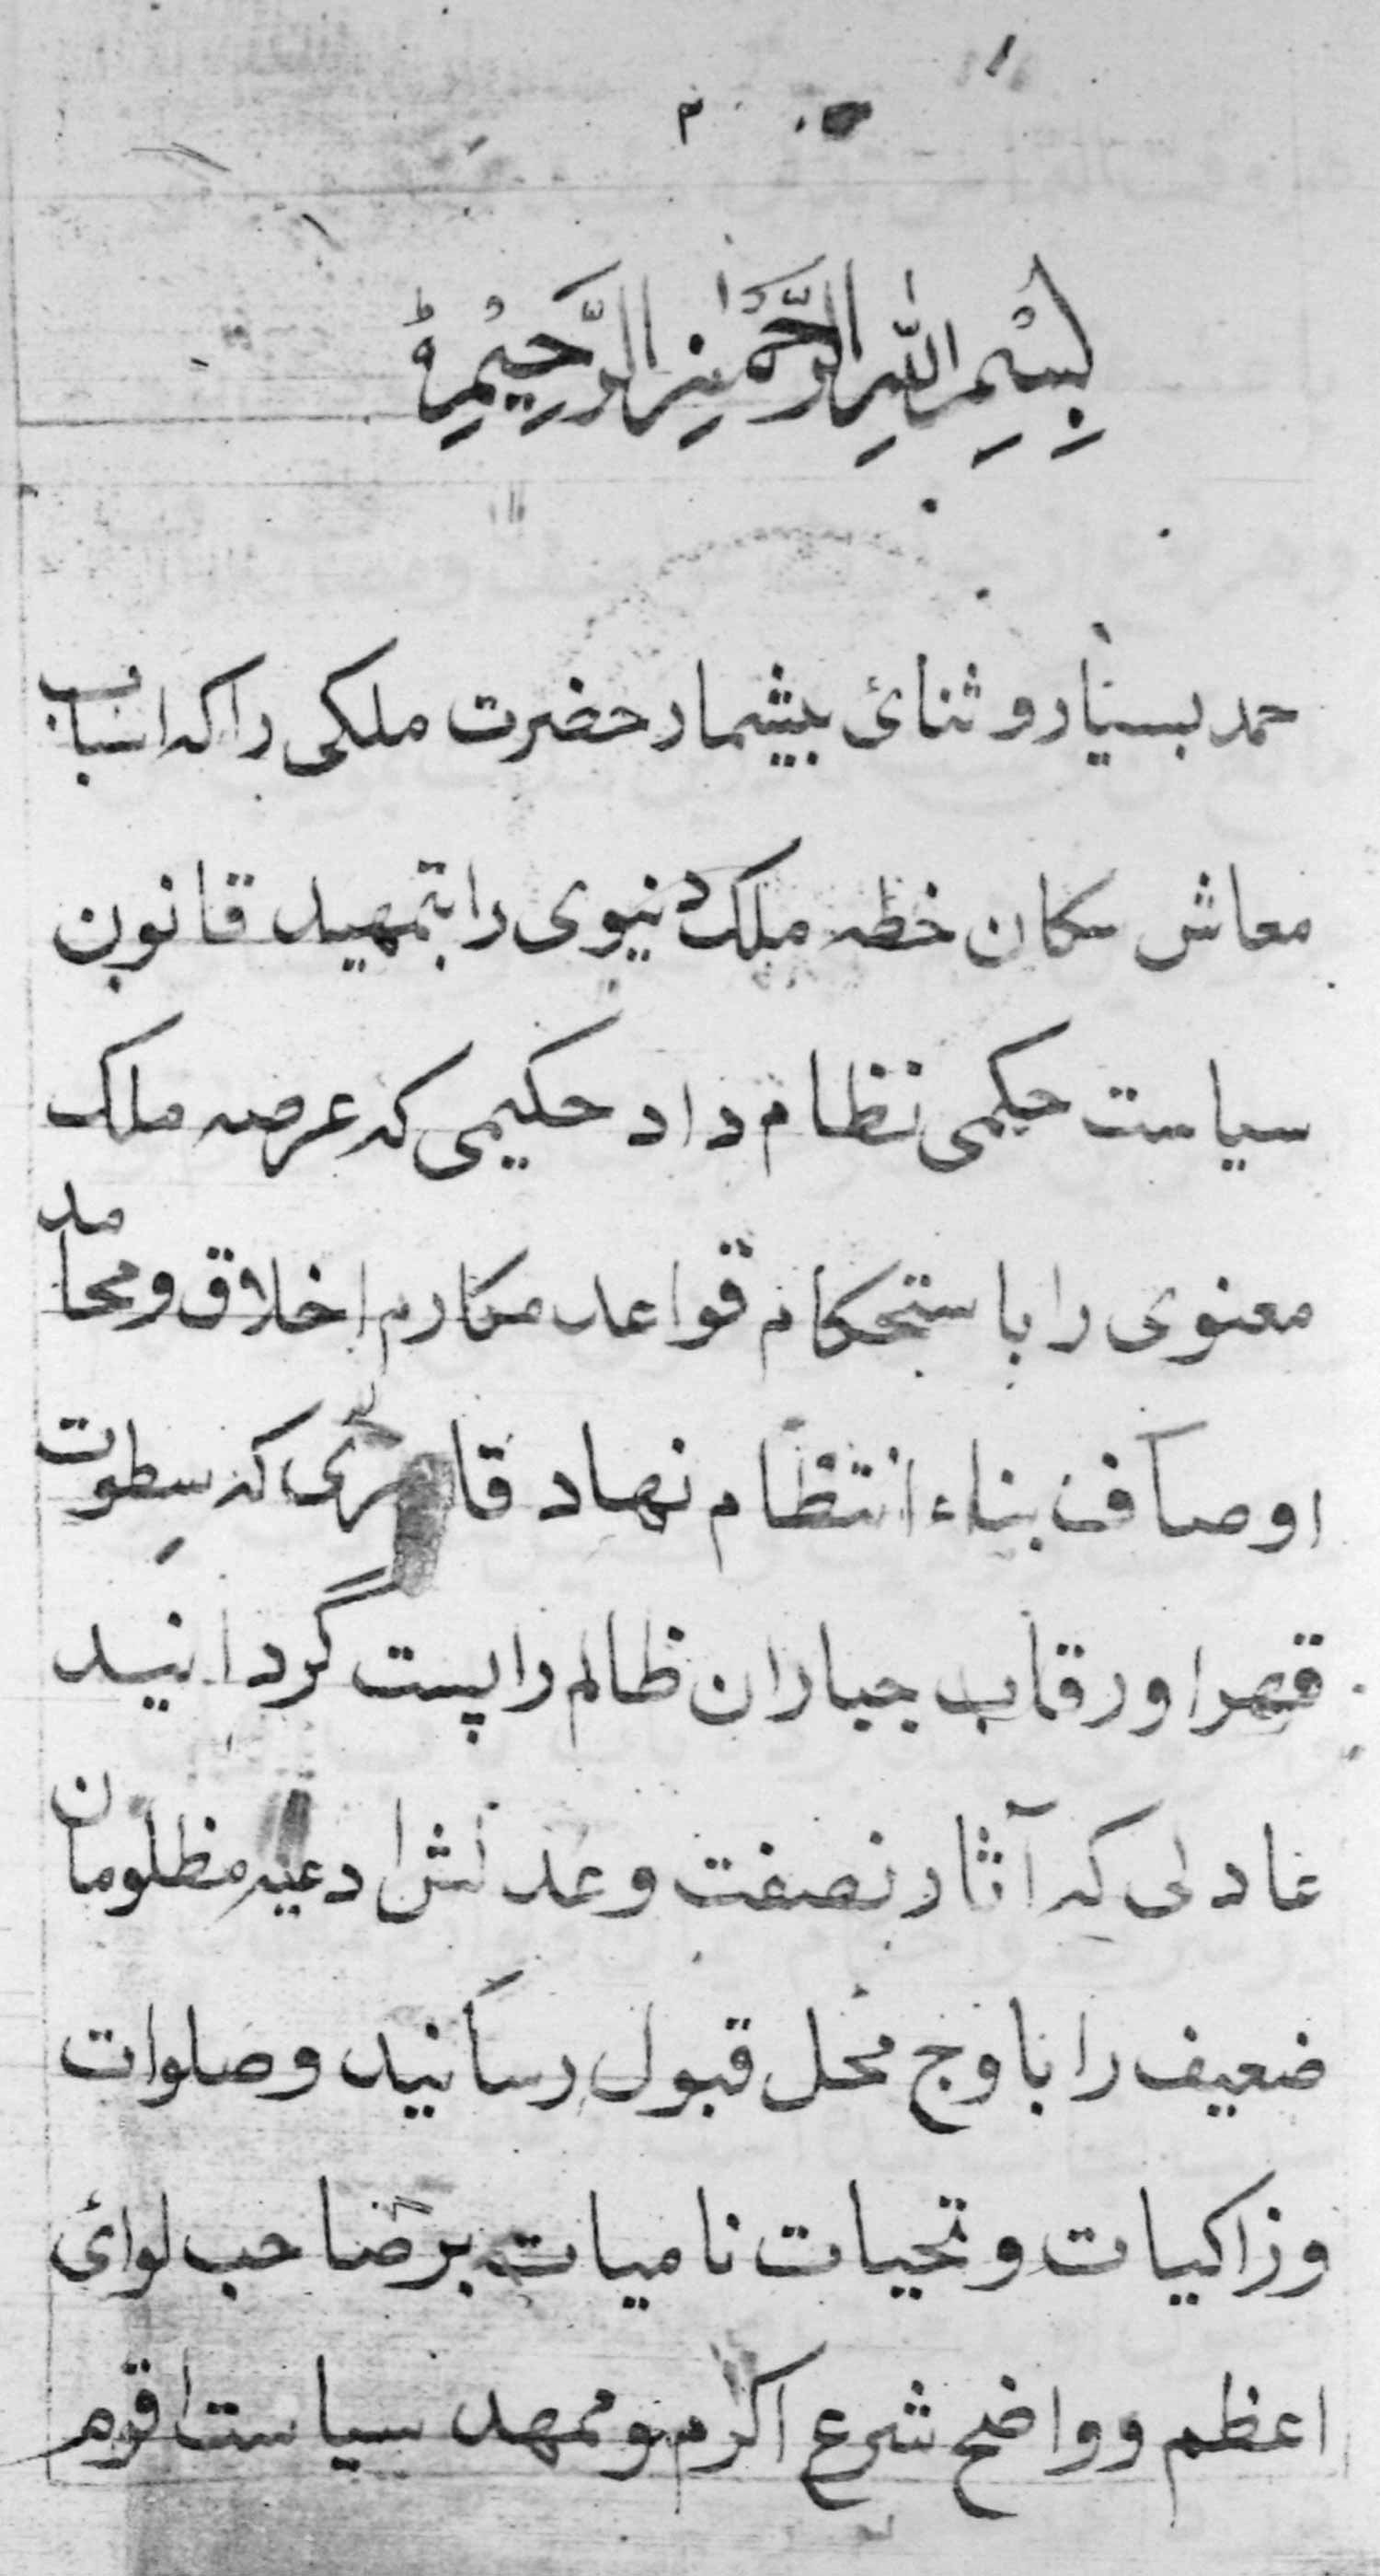 ۲
بِسْمِ اللّٰهِ الرَّحْمٰنِ الرَّحِيْمِ
حمد بسیار و ثنائ بیشمار حضرت ملکی را که اسباب
معاش سکان خطه ملک دنیوی را بتمهید قانون
سیاست حکمی نظام داد حکیمی که عرصه ملک
معنوی را باستحکام قواعد مکارم اخلاق و محامد
اوصاف بناء انتظام نهاد قاهری که سطوت
قهر او رقاب جباران ظالم را پست گردانید
عادلی که آثار نصفت و عدلش ادعیه مظلومان
ضعیف را باوج محل قبول رسانید و صلوات
وزاکیات و تحیات نامیات بر صاحب لوائ
اعظم و واضح شرع اکرم و ممهد سیاست اقوم